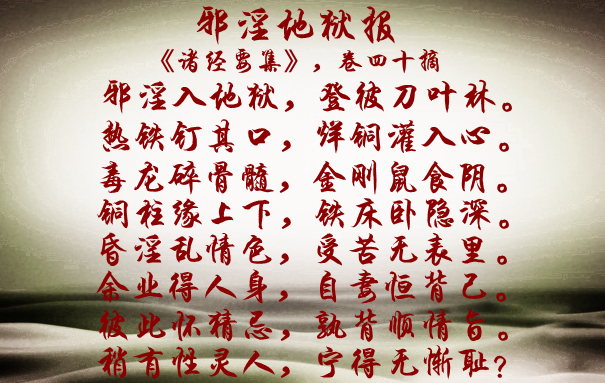 邪淫地狱报
《诸经要集》，卷四十摘
邪淫入地狱，登彼刀叶林。
热铁钉其口，烊铜灌入心。
毒龙碎骨髓，金刚鼠食阴。
铜柱缘上下，铁床卧隐深。
昏淫乱情色，受苦无表里。
余业得人身，自妻恒背己。
彼此怀猜忌，孰肯顺情旨。
稍有性灵人，宁得无惭耻？